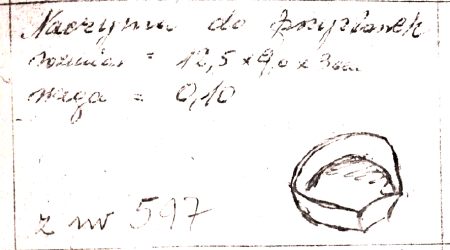 Naczynia do przyprawek
rozmiar = 12,5 x 9,0 x 3cm
waga = 0,10
z nr 597